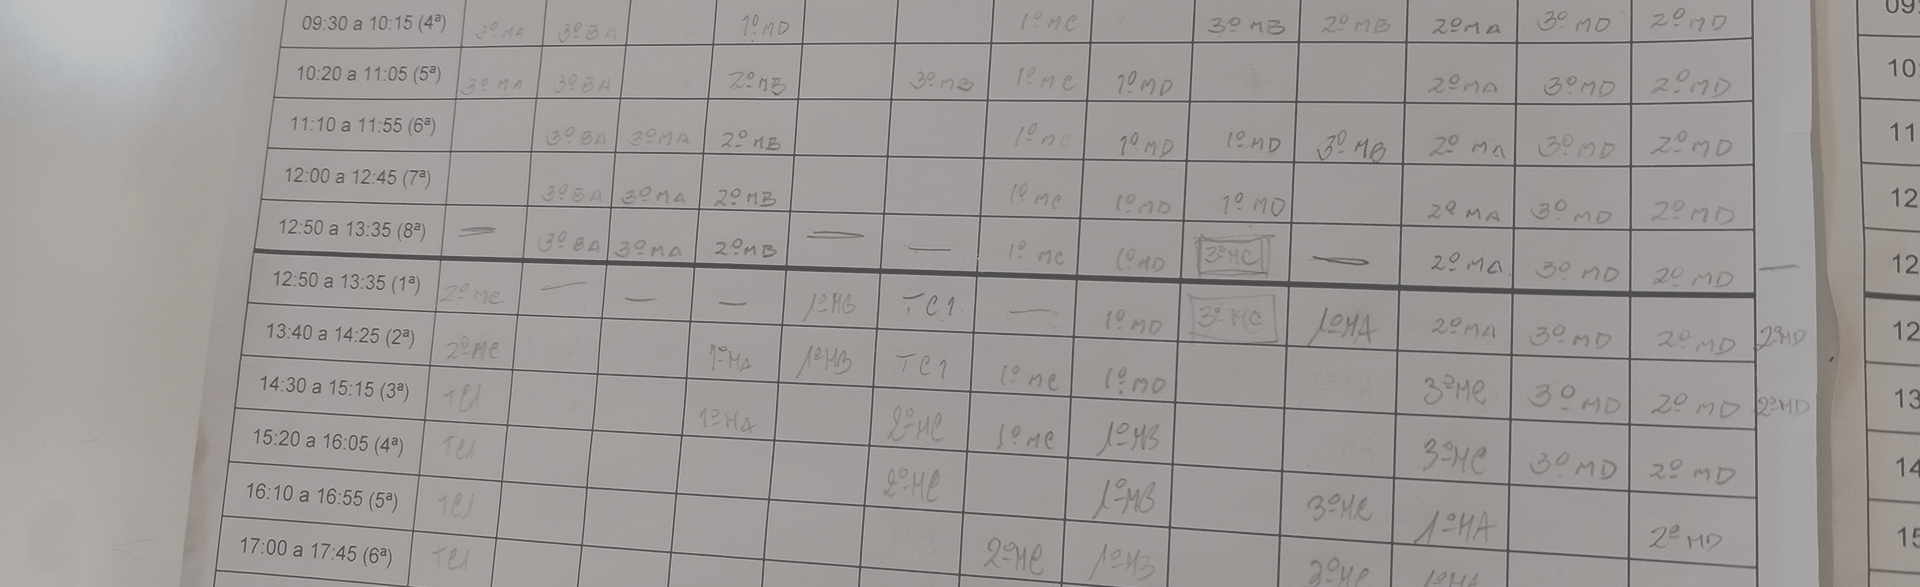 09:30 a 10:15 (4ª) 3º MA 3º BA 1º MD 1º MC 3º MB 2º MB 2º MA 3º MD 2º MD
10:20 a 11:05 (5ª) 3º MA 3º BA 2º MB 3º MB 1º MC 1º MD 2º MA 3º MD 2º MD
11:10 a 11:55 (6ª) 3º BA 3º MA 2º MB 1º MC 1º MD 1º MD 3º MB 2º MA 3º MD 2º MD
12:00 a 12:45 (7ª) 3º BA 3º MA 2º MB 1º MC 1º MD 1º MD 2º MA 3º MD 2º MD
12:50 a 13:35 (8ª) — 3º BA 3º MA 2º MB — — 1º MC 1º MD 3º MC — 2º MA 3º MD 2º MD —
12:50 a 13:35 (1ª) 2º MC — — — 1º MB TC1 — 1º MD 3º MC 1º MA 2º MA 3º MD 2º MD 2º MD
13:40 a 14:25 (2ª) 2º MC 1º MA 1º MB TC1 1º MC 1º MD 3º MC 3º MD 2º MD 2º MD
14:30 a 15:15 (3ª) TC1 1º MA 2º MC 1º MC 1º MB 3º MC 3º MD 2º MD
15:20 a 16:05 (4ª) TC1 2º MC 1º MB 3º MC 1º MA 2º MD
16:10 a 16:55 (5ª) TC1 2º MC 1º MB 2º MC 1º MA
17:00 a 17:45 (6ª) TC1
09:
10
11
12
12
12
13
14
15